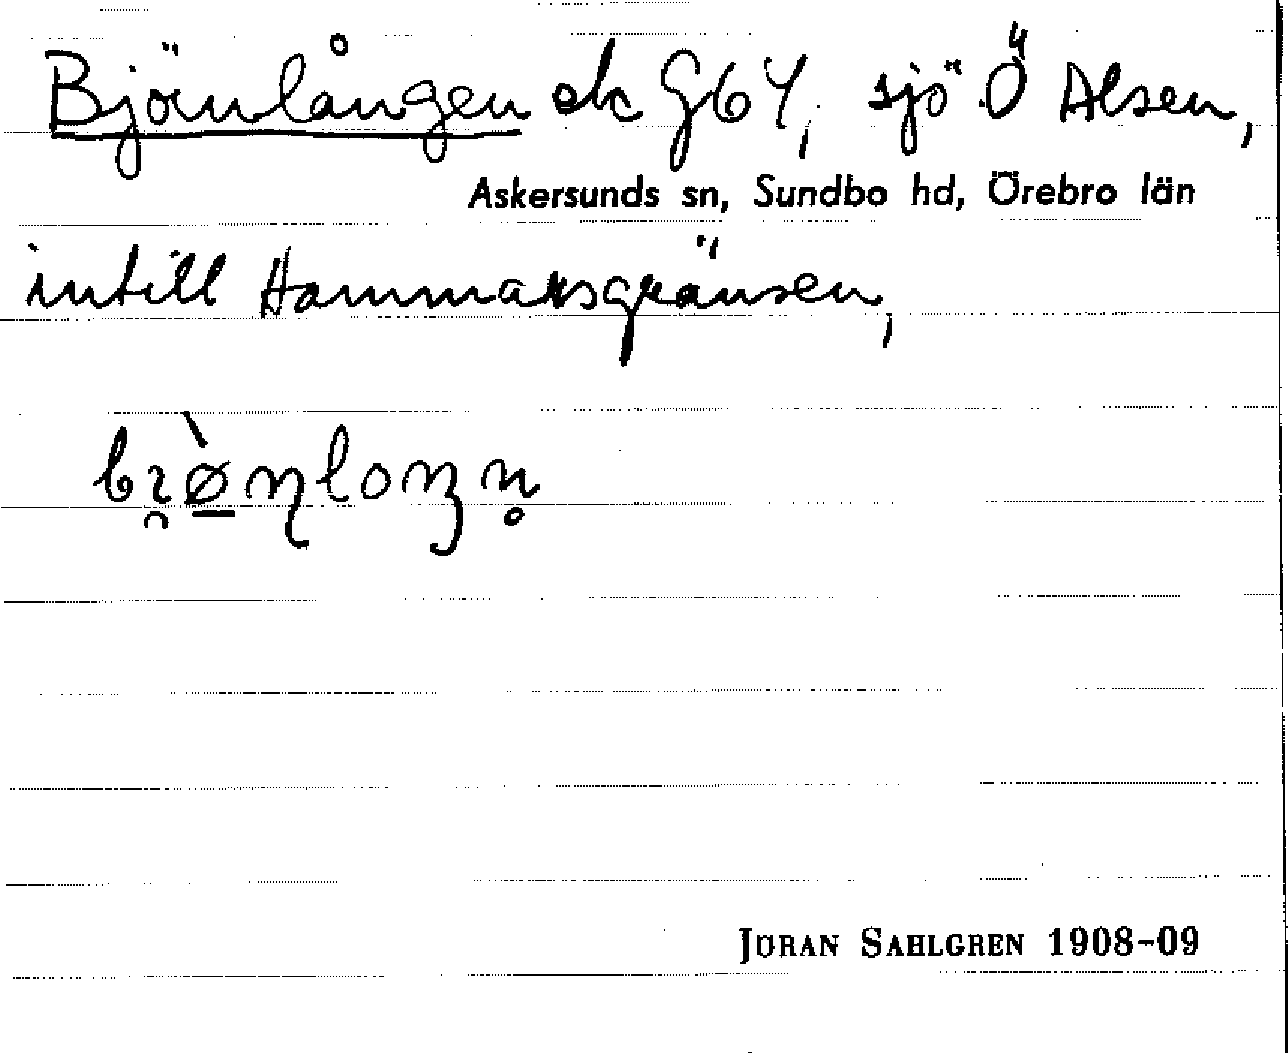 Björnlången ek G64, sjö Ö Alsen,
Askersunds sn, Sundbo hd, Örebro län
intill Hammarsgränsen,
JÖRAN SAHLGREN 1908-09